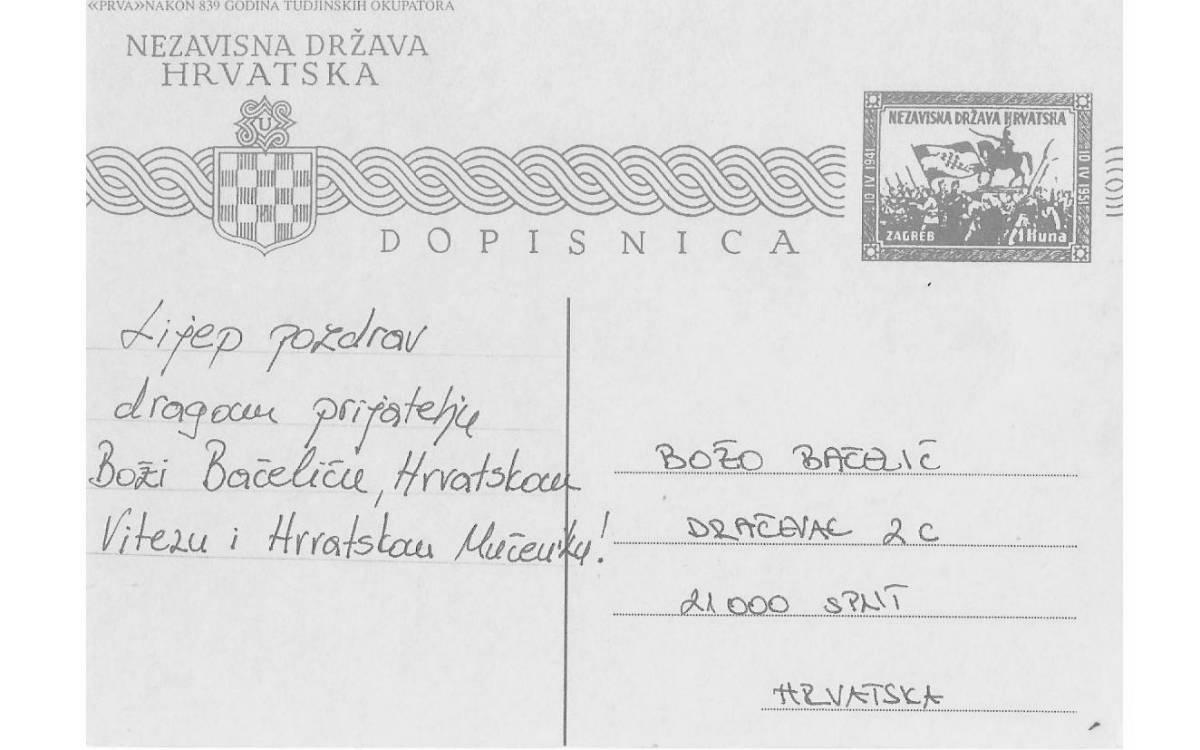 «PRVA»NAKON 839 GODINA TUDJINSKIH OKUPATORA
NEZAVISNA DRŽAVA
HRVATSKA
U
NEZAVISNA DRŽAVA HRVATSKA
10 IV 1941
10 IV 1951
ZAGREB
1 Kuna
DOPISNICA
Lijep pozdrav
dragom prijatelju
Boži Bačeliću, Hrvatskom
Vitezu i Hrvatskom Mučeniku!
BOŽO BAČELIĆ
DRAČEVAC 2C
21000 SPLIT
HRVATSKA